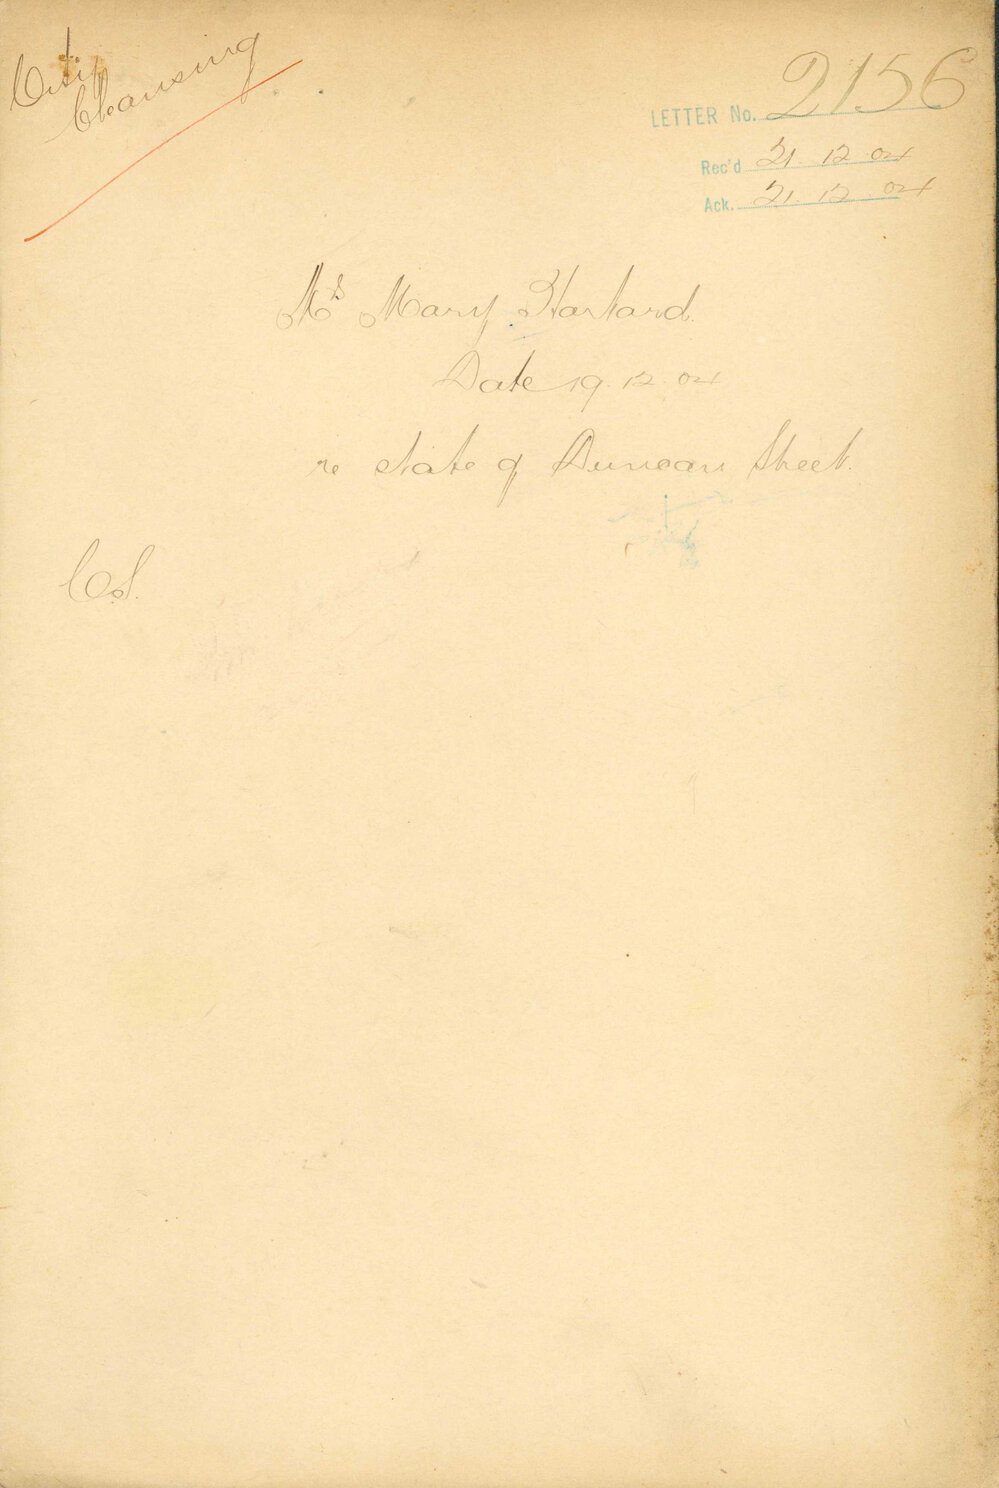 City
Cleansing
LETTER No. 2156
Rec'd 21. 12. 04
Ack. 21. 12. 04
Mrs Mary Harland.
Date 19. 12. 04
re state of Duncan Street.
C.S.